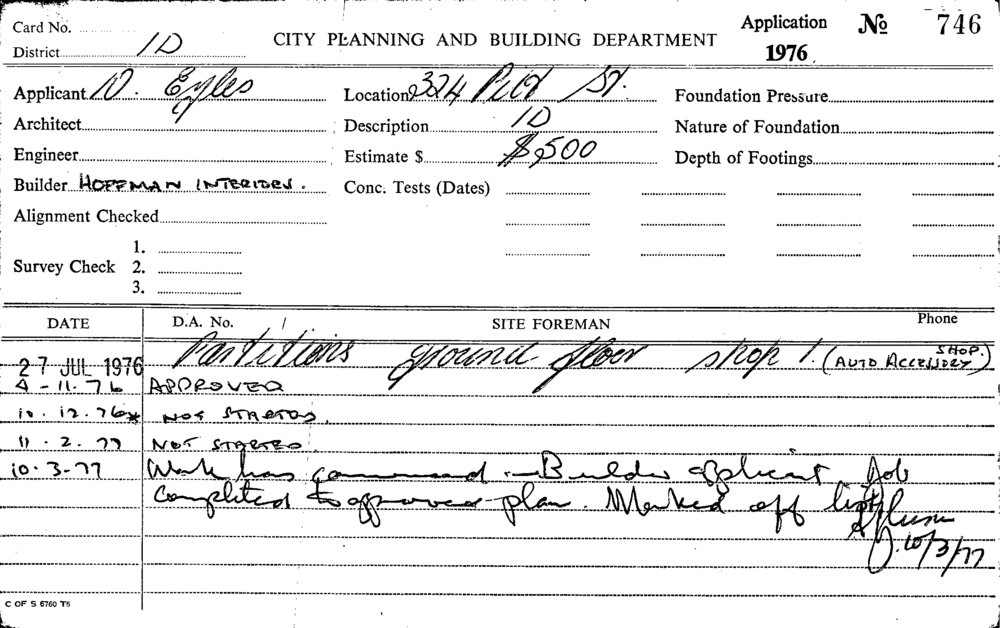 Card No.
District 1D
CITY PLANNING AND BUILDING DEPARTMENT
Application № 746
1976
Applicant D. Eyles
Location 324 Pitt St.
Foundation Pressure
Architect
Description 1D
Nature of Foundation
Engineer
Estimate $ $500
Depth of Footings
Builder HOFFMAN INTERIORS.
Conc. Tests (Dates)
Alignment Checked
Survey Check 1.
2.
3.
DATE D.A. No. SITE FOREMAN Phone
27 JUL 1976 Partitions ground floor shop 1. (AUTO ACCESSORY SHOP.)
4-11-76 APPROVED
10.12.76* NOT STARTED.
11.2.77 NOT STARTED
10.3.77 Work has commenced - Builder applicant Job
completed to approved plan. Marked off list
10/3/77
C OF S 6760 T6